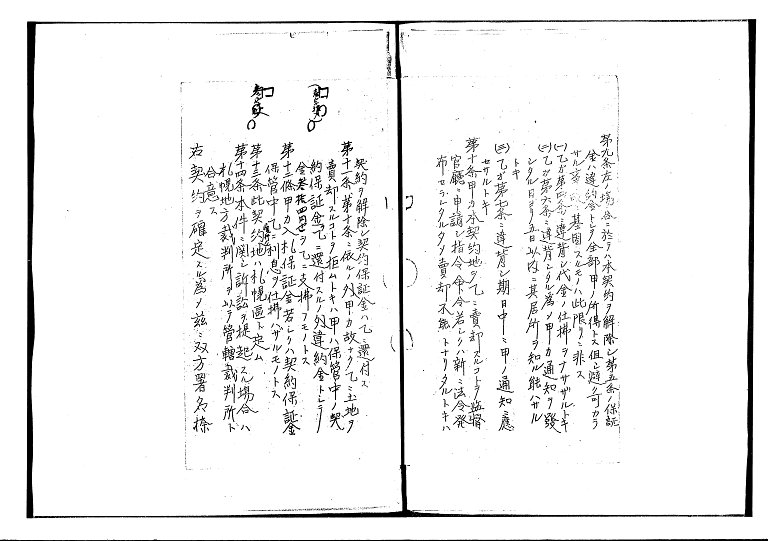 第九条左ノ場合ニ於テハ本契約ヲ解除シ第五条ノ保証
金ハ違約金トシテ全部甲ノ所得トス但シ避ク可カラ
サル事 ニ基因スルモノハ此限リニ非ス
(一)乙ガ第四条ニ違背シ代金ノ仕拂ヲナサザルトキ
(二)乙ガ第六条ニ違背シタル為メ甲カ通知ヲ發
シタル日ヨリ五日以内ニ其居所ヲ知ル能ハザル
トキ
(三)乙ガ第七条ニ違背シ期日中ニ甲ノ通知ニ應
セサルトキ
第十条甲カ本契約地ヲ乙ニ賣却スルコトヲ監督
官廳ニ申請シ指令命令若シクハ新ニ法令發
布セラレタルタメ賣却不能トナリタルトキハ
契約ヲ解除シ契約保証金ハ乙ニ還付ス
第十一条第十条ニ依ルノ外甲カ故ナク乙ニ土地ヲ
賣却スルコトヲ拒ムトキハ甲ハ保管中ノ契
約保証金ヲ乙ニ還付スルノ外違約金トシテ
金壱拾四円也ヲ乙ニ支拂フモノトス
第十二條甲カ入札保証金若シクハ契約保証金
保管中乙ニ利息ヲ仕拂ハザルモノトス
第十三条此契約地ハ札幌區ト定ム
第十四条本件ニ関シ訴訟ヲ提起スル場合ハ
札幌地方裁判所ヲ以テ管轄裁判所ト
合意ス
右契約ヲ確定スル為メ茲ニ双方署名捺